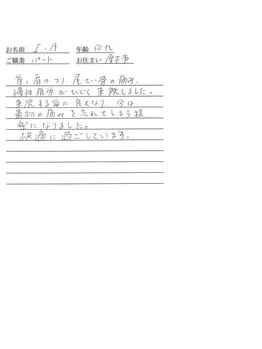 お名前 I・A 年齢 50代
ご職業 パート お住まい 厚木市
首、肩のコリ、尾てい骨の痛み、
慢性疲労がひどく来院しました。
来院する毎に良くなり、今は
最初の痛みを忘れてしまう程
楽になりました。
快適に過ごしています。